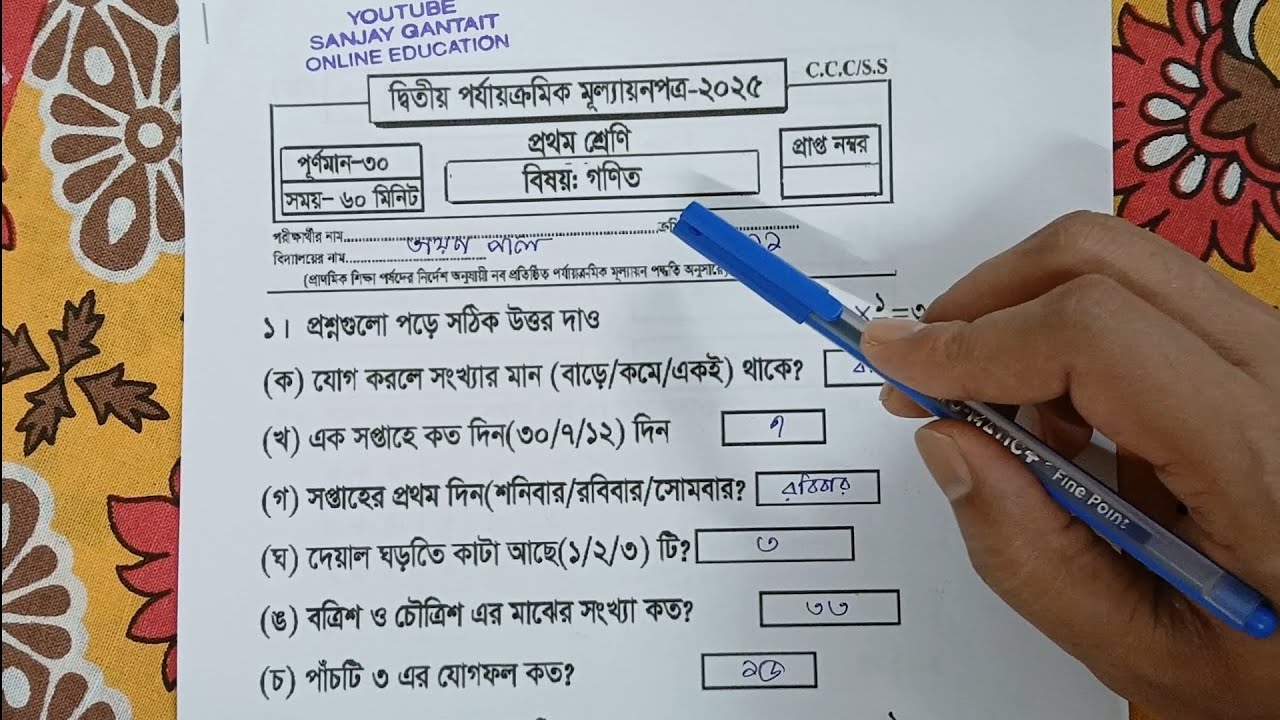 YOUTUBE
SANJAY GANTAIT
ONLINE EDUCATION
C.C.C/S.S
দ্বিতীয় পর্যায়ক্রমিক মূল্যায়নপত্র-২০২৫
প্রথম শ্রেণি
পূর্ণমান-৩০
প্রাপ্ত নম্বর
বিষয়: গণিত
সময়- ৬০ মিনিট
পরীক্ষার্থীর নাম.......... পাল
বিদ্যালয়ের নাম..........
(প্রাথমিক শিক্ষা পর্ষদের নির্দেশ অনুযায়ী নব প্রতিষ্ঠিত পর্যায়ক্রমিক মূল্যায়ন পদ্ধতি অনুসারে)
১। প্রশ্নগুলো পড়ে সঠিক উত্তর দাও
(ক) যোগ করলে সংখ্যার মান (বাড়ে/কমে/একই) থাকে?
(খ) এক সপ্তাহে কত দিন(৩০/৭/১২) দিন ৭
(গ) সপ্তাহের প্রথম দিন(শনিবার/রবিবার/সোমবার? রবিবার
(ঘ) দেয়াল ঘড়িতে কাটা আছে(১/২/৩) টি? ৩
(ঙ) বত্রিশ ও চৌত্রিশ এর মাঝের সংখ্যা কত? ৩৩
(চ) পাঁচটি ৩ এর যোগফল কত? ১৫
Fine Point